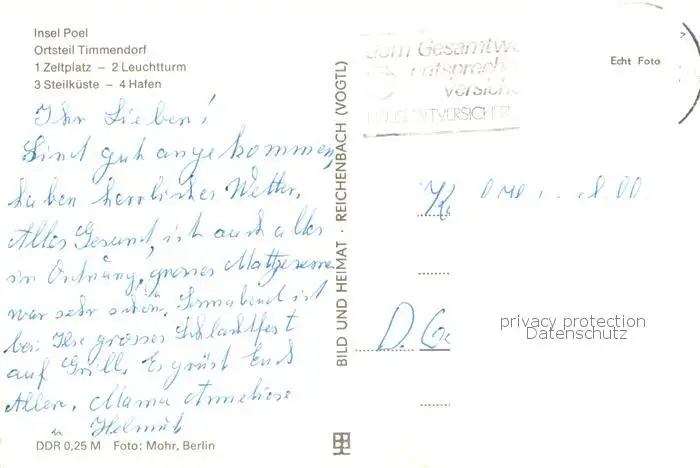 Insel Poel
Ortsteil Timmendorf
1 Zeltplatz – 2 Leuchtturm
3 Steilküste – 4 Hafen
Ihr Lieben!
Sind gut angekommen,
haben herrliches Wetter.
Alles Gesund, ist auch alles
in Ordnung, grosses
war sehr schön. Sonnabend ist
bei Ilse grosses Schlachtfest
auf Grill. Es grüst Euch
Allen, Mama Anneliese
u Helmut
DDR 0,25 M Foto: Mohr, Berlin
BILD UND HEIMAT · REICHENBACH (VOGTL)
dem Gesamtwe
entsprech
versiche
Echt Foto
D.
privacy protection
Datenschutz